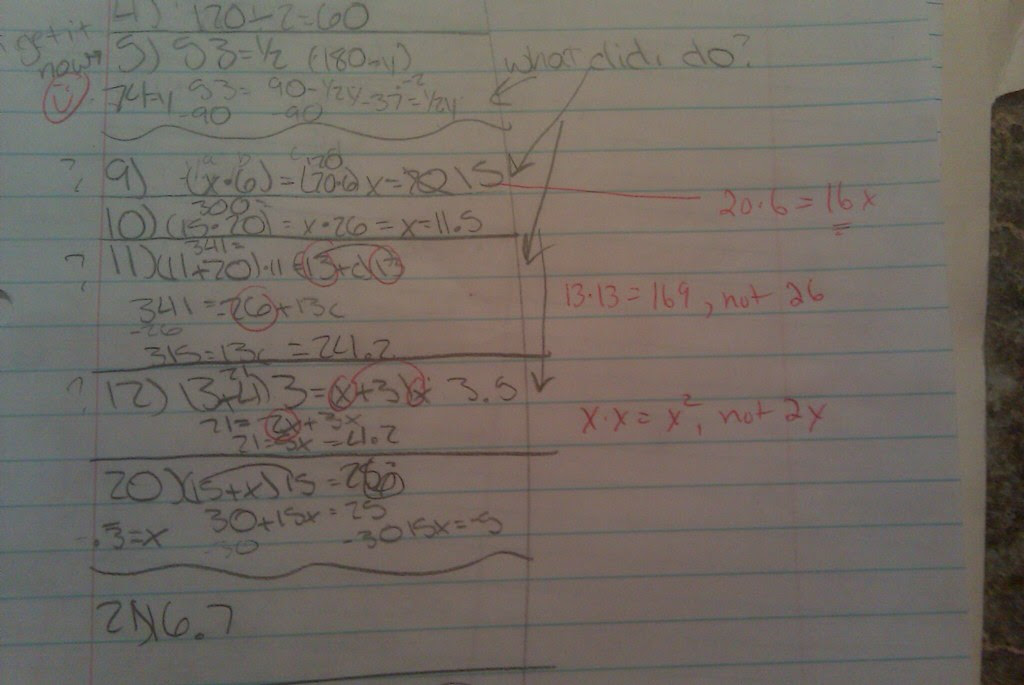 4) 120÷2=60
get it now
5) 53=½ (180-y) what did i do?
74=y 53= 90-½y -37=½y
-90 -90
? 9) (x·6)=(20·6) x= 15
20·6=16x
300=
10)(15·20)=x·26=x=11.5
341=
? 11)(11+20)·11=(13+c)13
13·13=169, not 26
341=26+13c
-26
315=13c =24.2
? 12)(3+4)3=(x+3)x 3.5
x·x=x², not 2x
21=2x+3x
21=5x=4.2
20)(15+x)15=
30+15x=25
.3=x -30 -30 15x=-5
21)6.7